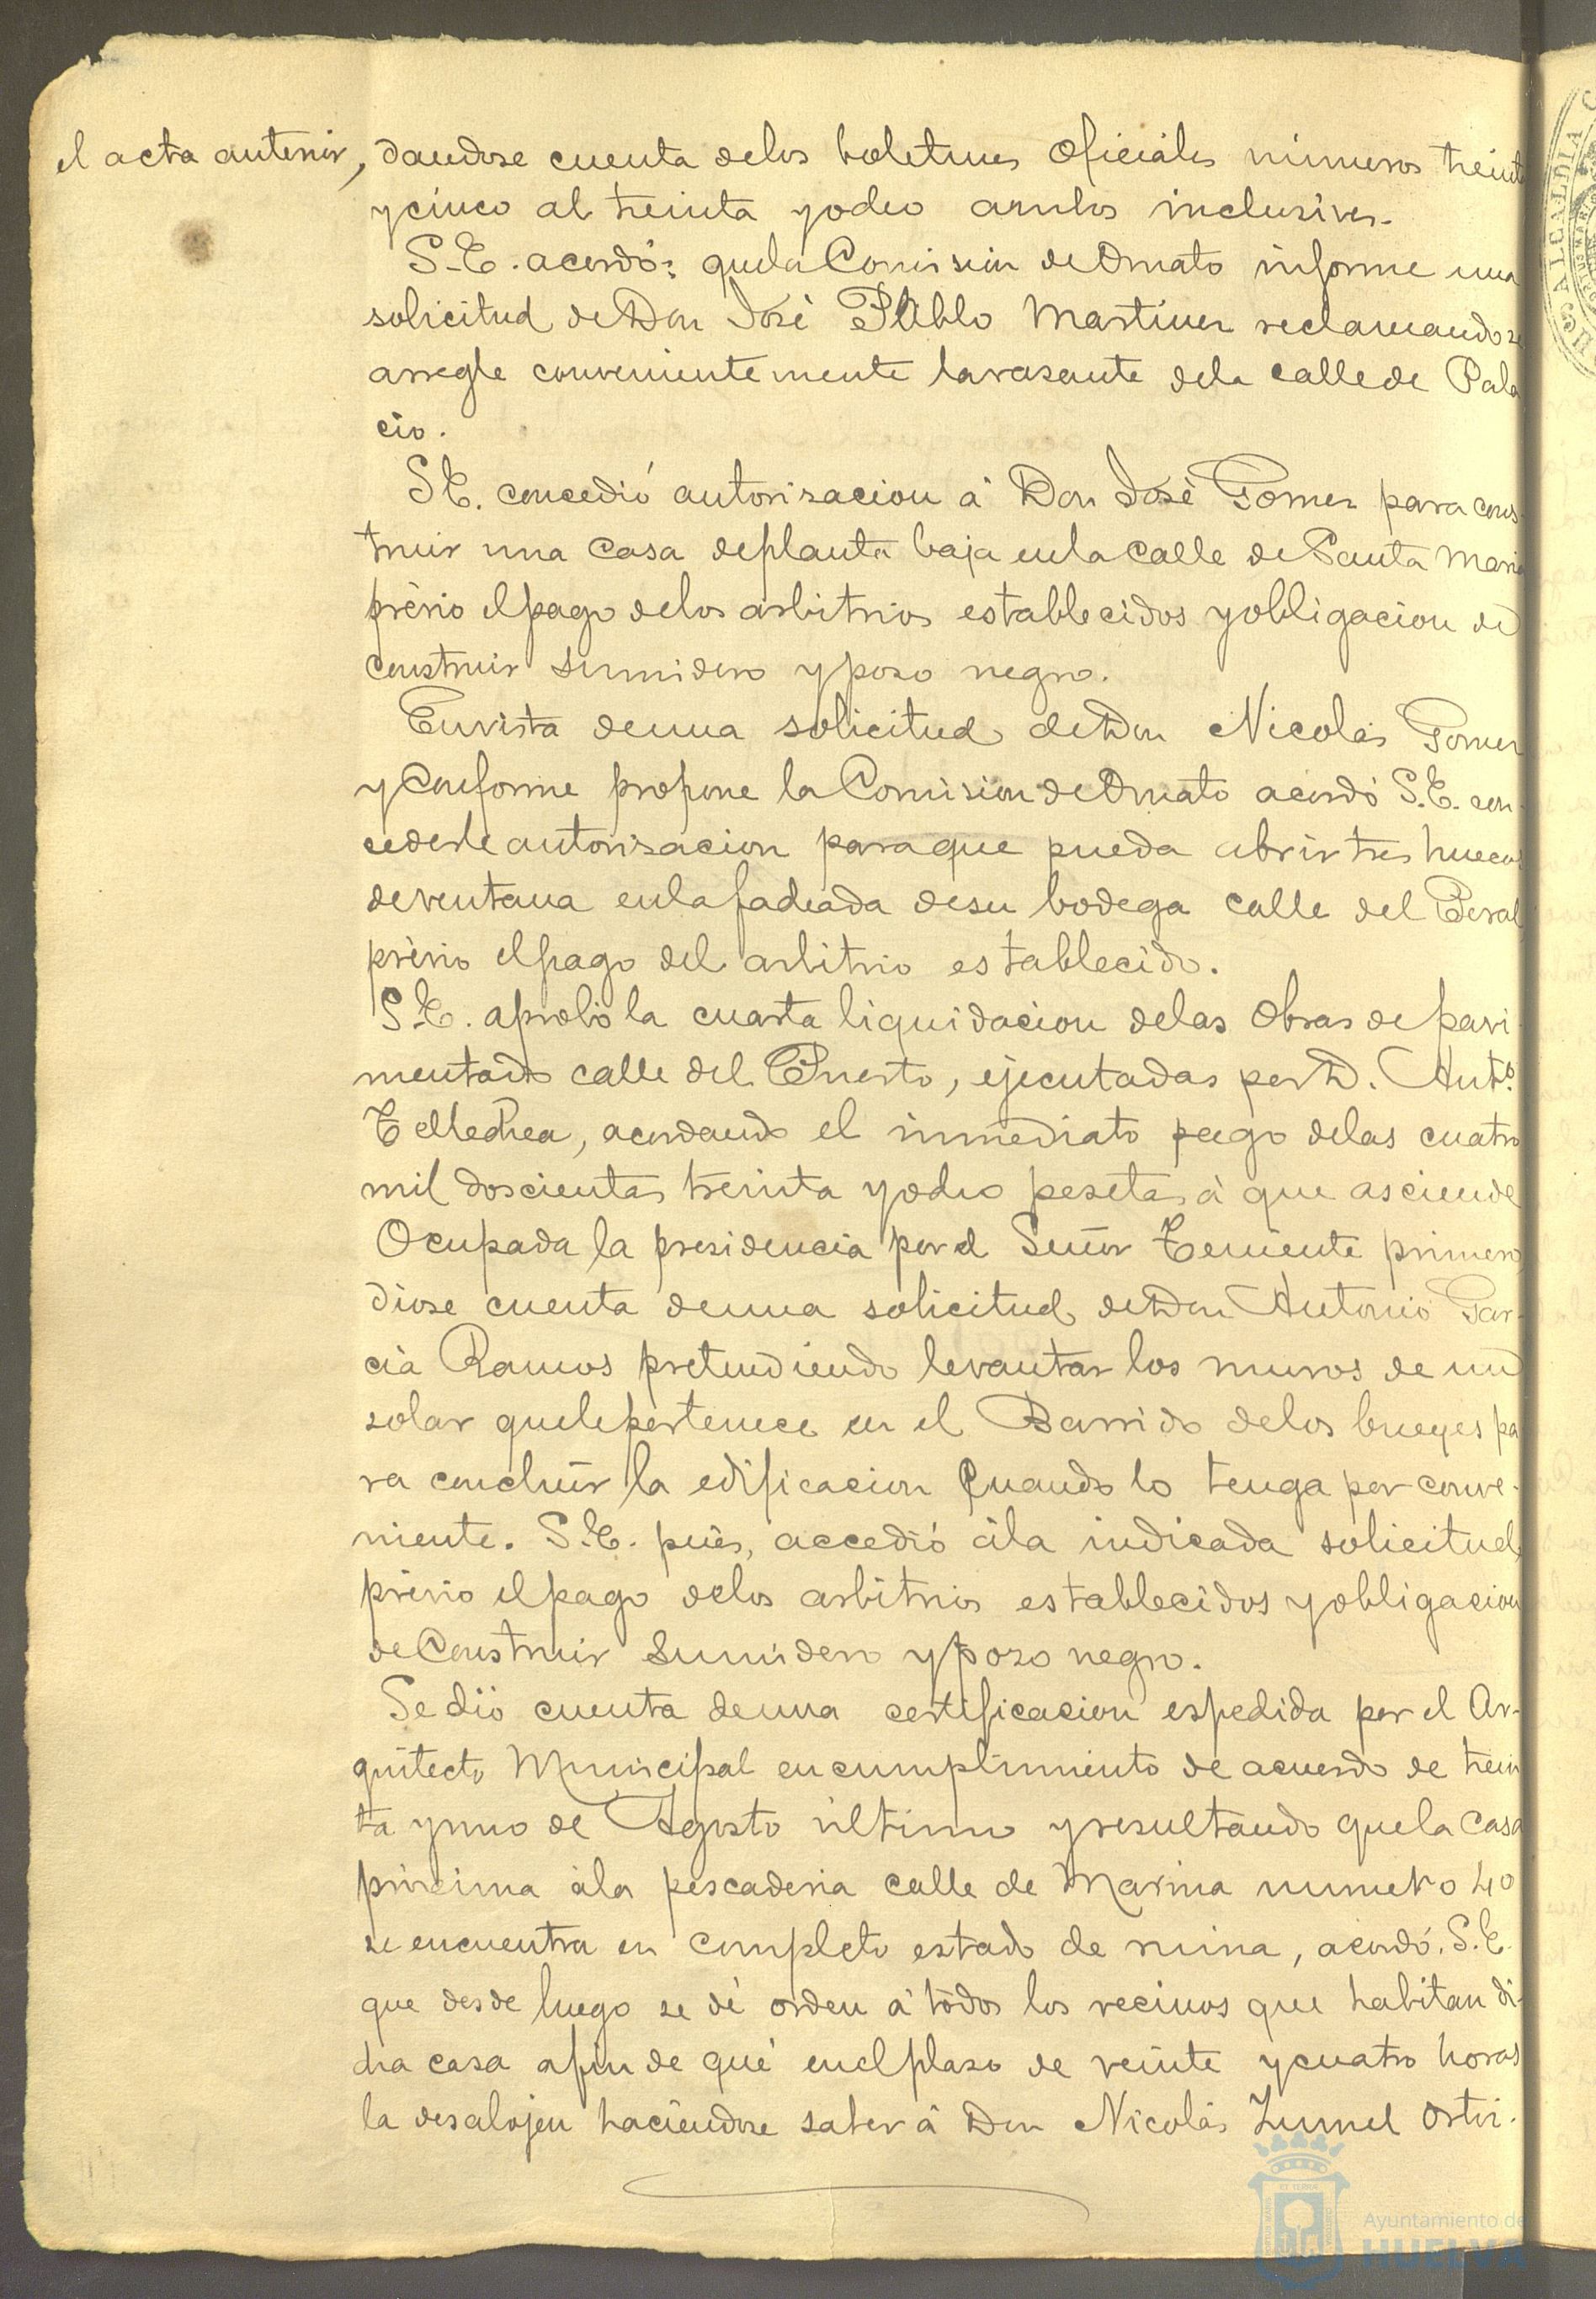 el acta anterior, dandose cuenta delos boletines Oficiales numeros treinta
y cinco al treinta yocho ambos inclusives.
S.E. acordó: quela Comision de Ornato informe una
solicitud de Don José Pablo Martinez reclamando se
arregle convenientemente larasante dela callede Pala
cio.
S.E. concedió autorizacion á Don José Gomez para cons-
truir una casa deplanta baja enla Calle de Santa Maria
prévio elpago delos arbitrios establecidos yobligacion de
construir sumidero y pozo negro.
En vista deuna solicitud de Don Nicolás Gomez
y conforme propone la Comision de Ornato acordó S.E. con-
cederle autorizacion paraque pueda abrir tres huecos
deventana enlafachada desu bodega calle del Peral
prévio elpago del arbitrio establecido.
S.E. aprobó la cuarta liquidacion delas Obras de pavi
mentado calle del Puerto, ejecutadas por D. Antº
Tellechea, acordando el inmediato pago delas cuatro
mil doscientas treinta yocho pesetas á que asciende
Ocupada la presidencia por el Señor Teniente primero
dióse cuenta deuna solicitud de Don Antonio Gar-
cia Ramos pretendiendo levantar los muros de un
solar quelepertenece en el Barrido delos bueyes pa
ra concluir la edificacion Cuando lo tenga por conve-
niente. S.E. pués, accedió ála indicada solicitud
prévio elpago delos arbitrios establecidos yobligacion
de Construir sumidero y pozo negro.
Se dió cuenta deuna certificacion espedida por el Ar-
quitecto Municipal en cumplimiento de acuerdo de trein
ta y uno de Agosto último y resultando quela casa
próxima ála pescaderia calle de Marina numero 40
se encuentra en completo estado de ruina, acordó S.E.
que desde luego se dé orden á todos los vecinos que habitan di-
cha casa afin de qué enelplazo de veinte ycuatro horas
la desalojen haciendose saber á Don Nicolás Zumel Ortiz.
Ayuntamiento de
HUELVA